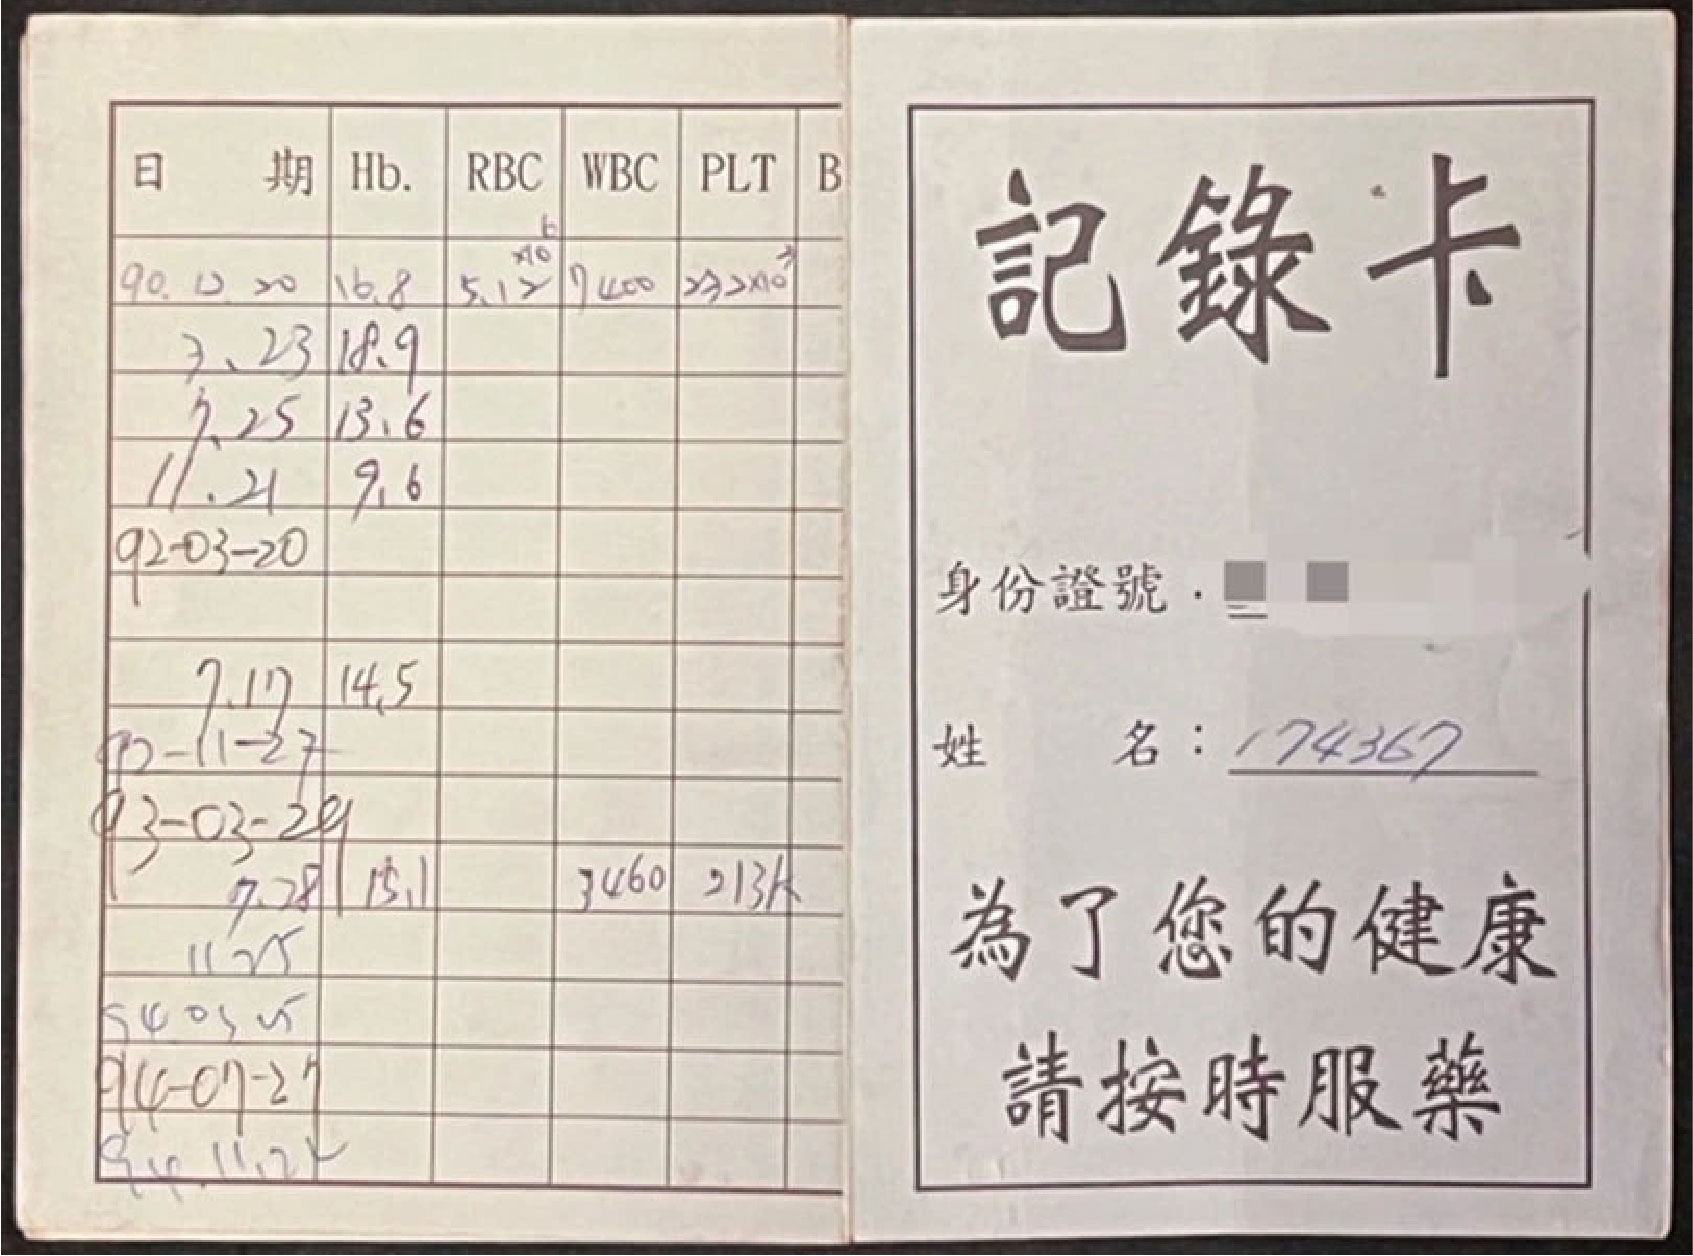 日 期 Hb. RBC WBC PLT B
90.12.20 16.8 5.12×10⁶ 7400 232×10³
3.23 18.9
7.25 13.6
11.21 9.6
92-03-20
7.17 14.5
92-11-27
93-03-29
7.28 15.1 3460 213K
11 25
94 03 25
94-07-27
94.11.2
記錄卡
身份證號
姓 名：174367
為了您的健康
請按時服藥